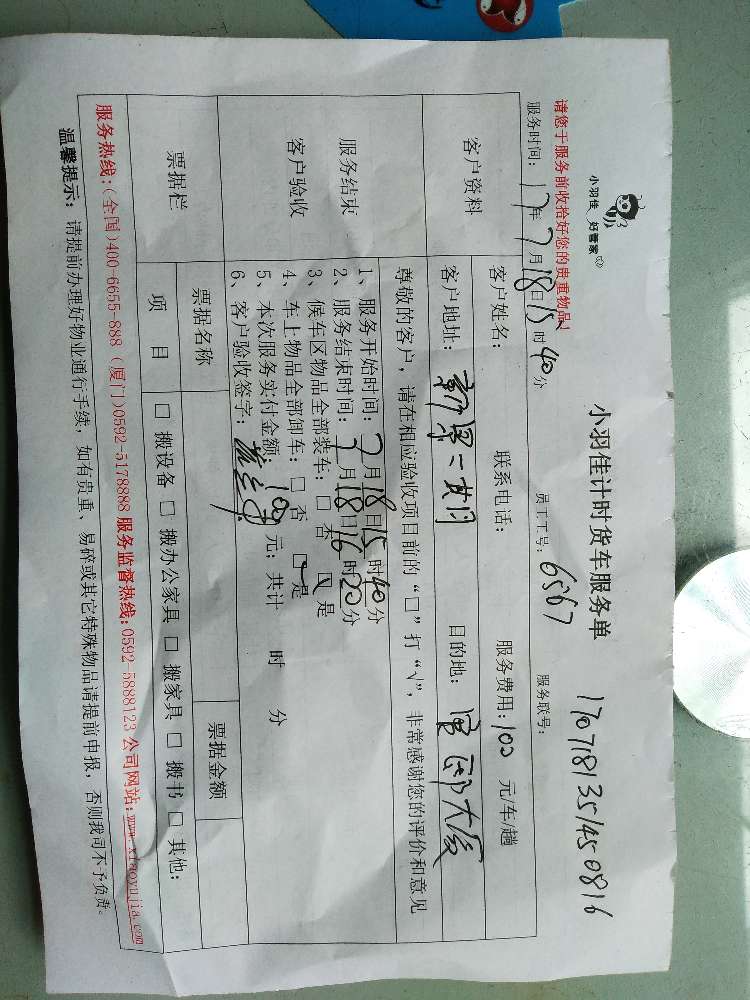 小羽佳 好管家
小羽佳计时货车服务单
170718135145 0816
请您于服务前收拾好您的贵重物品!
员工工号: 6567
服务联号:
服务时间: 17年 7月18日15时40分
客户资料
客户姓名: 联系电话: 服务费用: 100 元/车/趟
客户地址: 目的地:
尊敬的客户，请在相应验收项目前的“□”打“√”，非常感谢您的评价和意见
服务结束
客户验收
1、服务开始时间: 7月18日15时40分
2、服务结束时间: 7月18日16时20分
3、候车区物品全部装车: □ 否 □ 是
4、车上物品全部卸车: □ 否 □ 是
5、本次服务实付金额: 100 元; 共计 时 分
6、客户验收签字:
票据栏
票据名称 票据金额
项 目 □ 搬设备 □ 搬办公家具 □ 搬家具 □ 搬书 □ 其他:
服务热线:(全国)400-6655-888 (厦门)0592-5178888 服务监督热线:0592-5888123 公司网站:www.xiaoyujia.com
温馨提示: 请提前办理好物业通行手续，如有贵重、易碎或其它特殊物品请提前申报，否则我司不予负责。